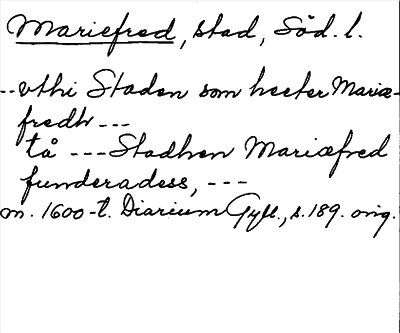 Mariefred, stad, Söd. l.
--vthi Staden som heeter Mariæ-
fredh ---
tå --- Stadhen Mariæfred
funderadess, ---
m. 1600-t. Diarium Gyll., s. 189. orig.